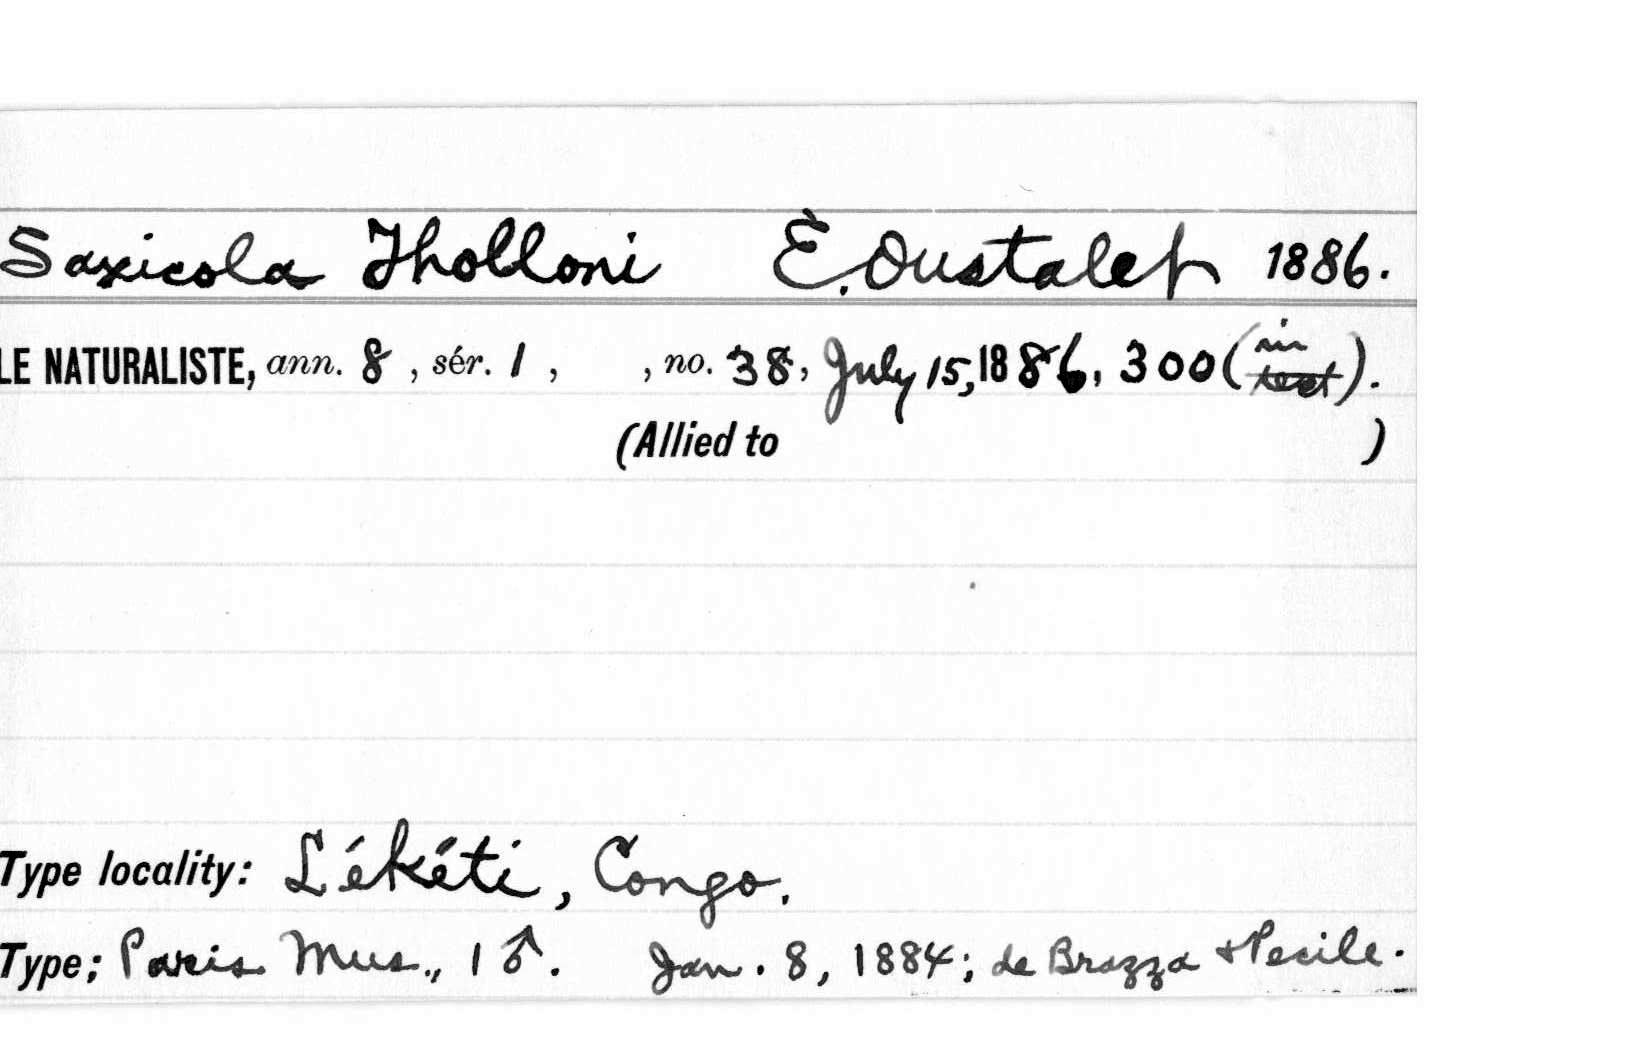 Saxicola Tholloni É. Oustalet 1886.
LE NATURALISTE, ann. 8, sér. 1, , no. 38, July 15, 1886, 300 (in text).
(Allied to )
Type locality: Lékéti, Congo.
Type; Paris Mus., 1 ♂. Jan. 8, 1884; de Brazza & Pecile.